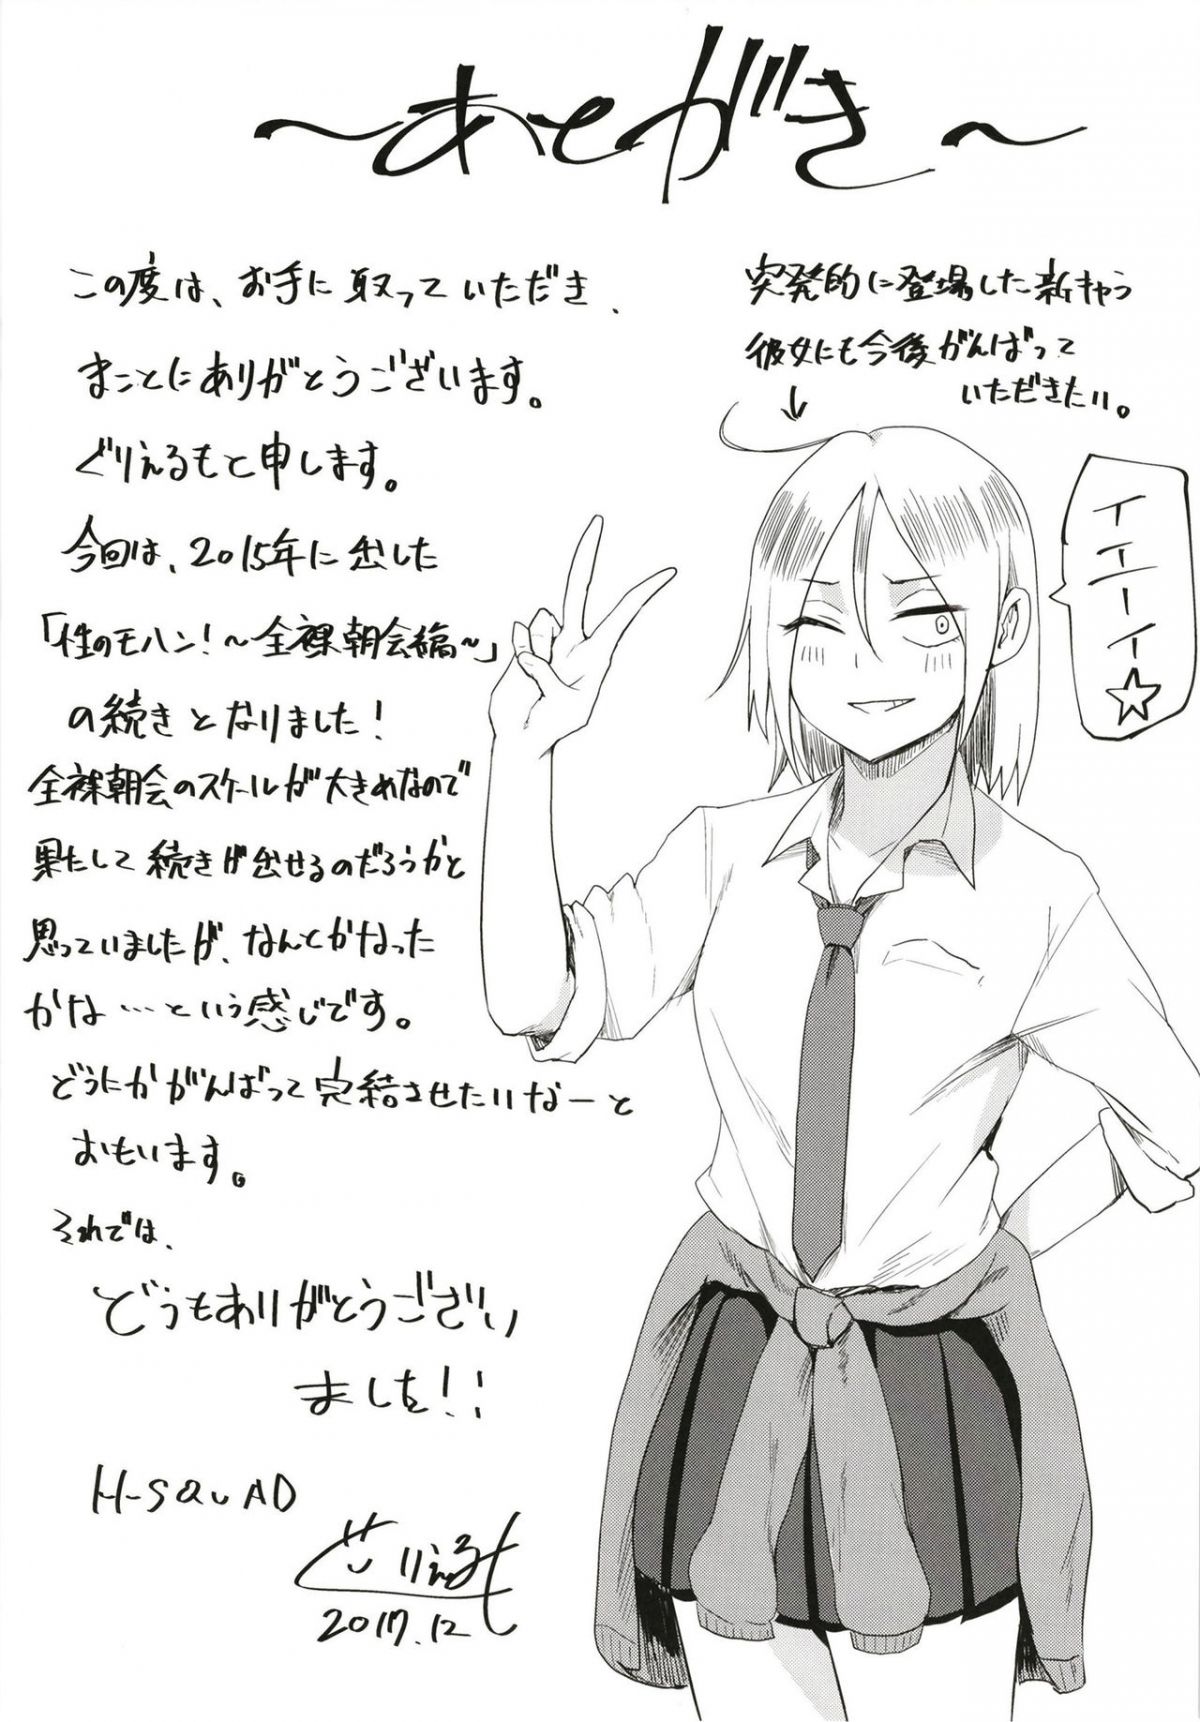 ～あとがき～
この度は、お手に取っていただき、
まことにありがとうございます。
ぐりえるもと申します。
今回は、2015年に出した
「性のモハン!～全裸朝会編～」
の続きとなりました!
全裸朝会のスケールが大きめなので
果たして続きが出せるのだろうかと
思っていましたが、なんとかなった
かな…という感じです。
どうにかがんばって完結させたいなーと
おもいます。
それでは、
どうもありがとうござい
ました!!
H-SQUAD
ぐりえるも
2017.12
突発的に登場した新キャラ
彼女にも今後がんばって
いただきたい。
イエーイ☆